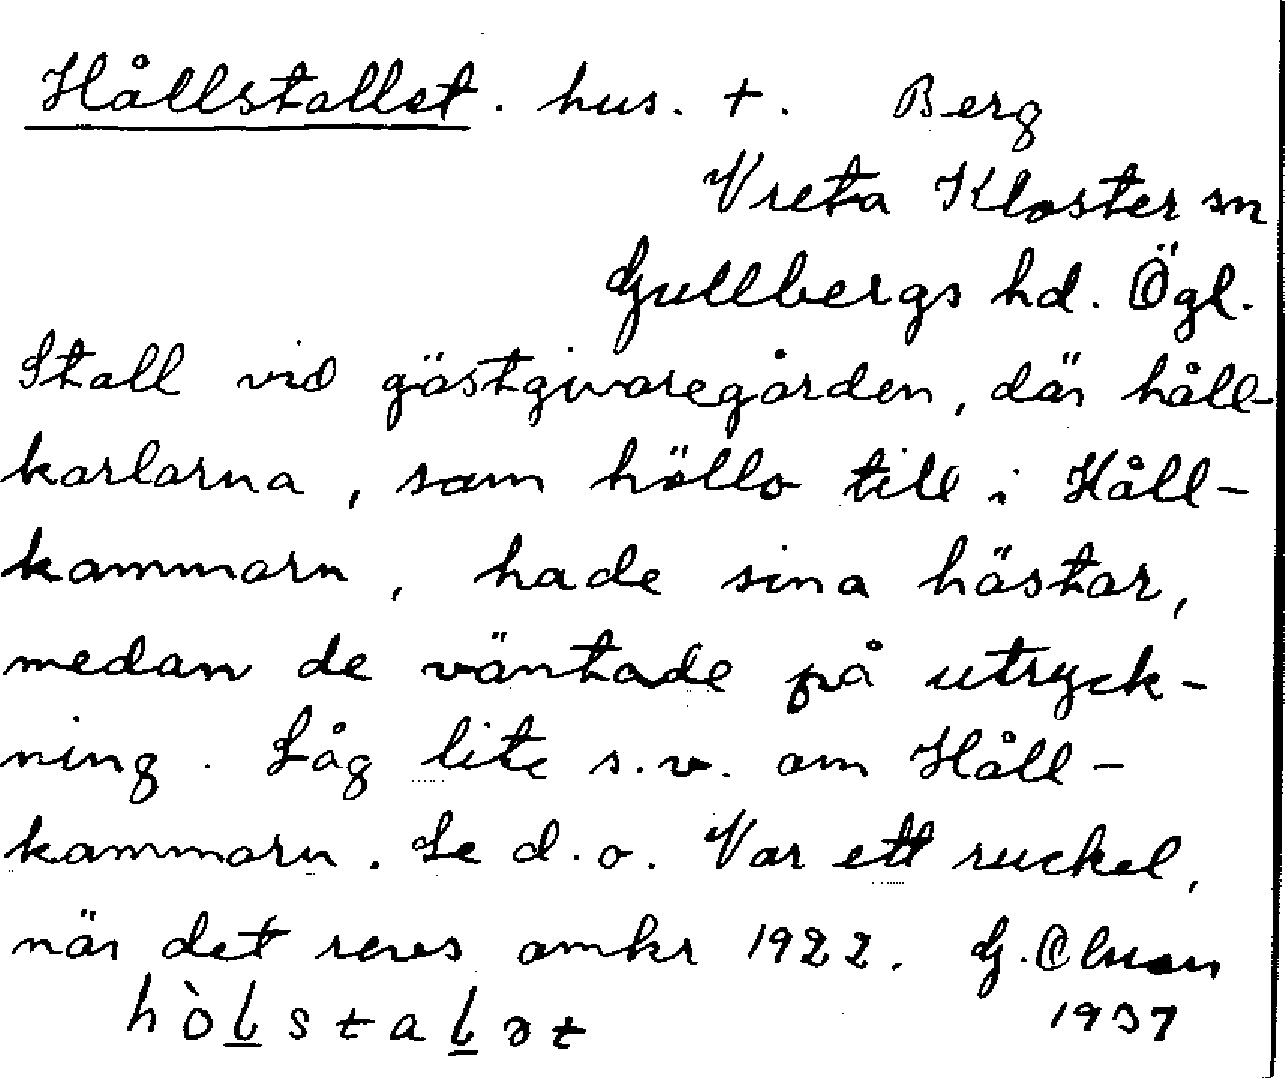 Hållstallet. hus. +. Berg
Vreta Kloster sn
Gullbergs hd. Ögl.
Stall vid gästgivaregården, där håll-
karlarna, som höllo till i Håll-
kammarn, hade sina hästar,
medan de väntade på utryck-
ning. Låg lite s.v. om Håll-
kammarn. Se d.o. Var ett ruckel,
när det revs omkr 1922. G.
1937
hòlstalət